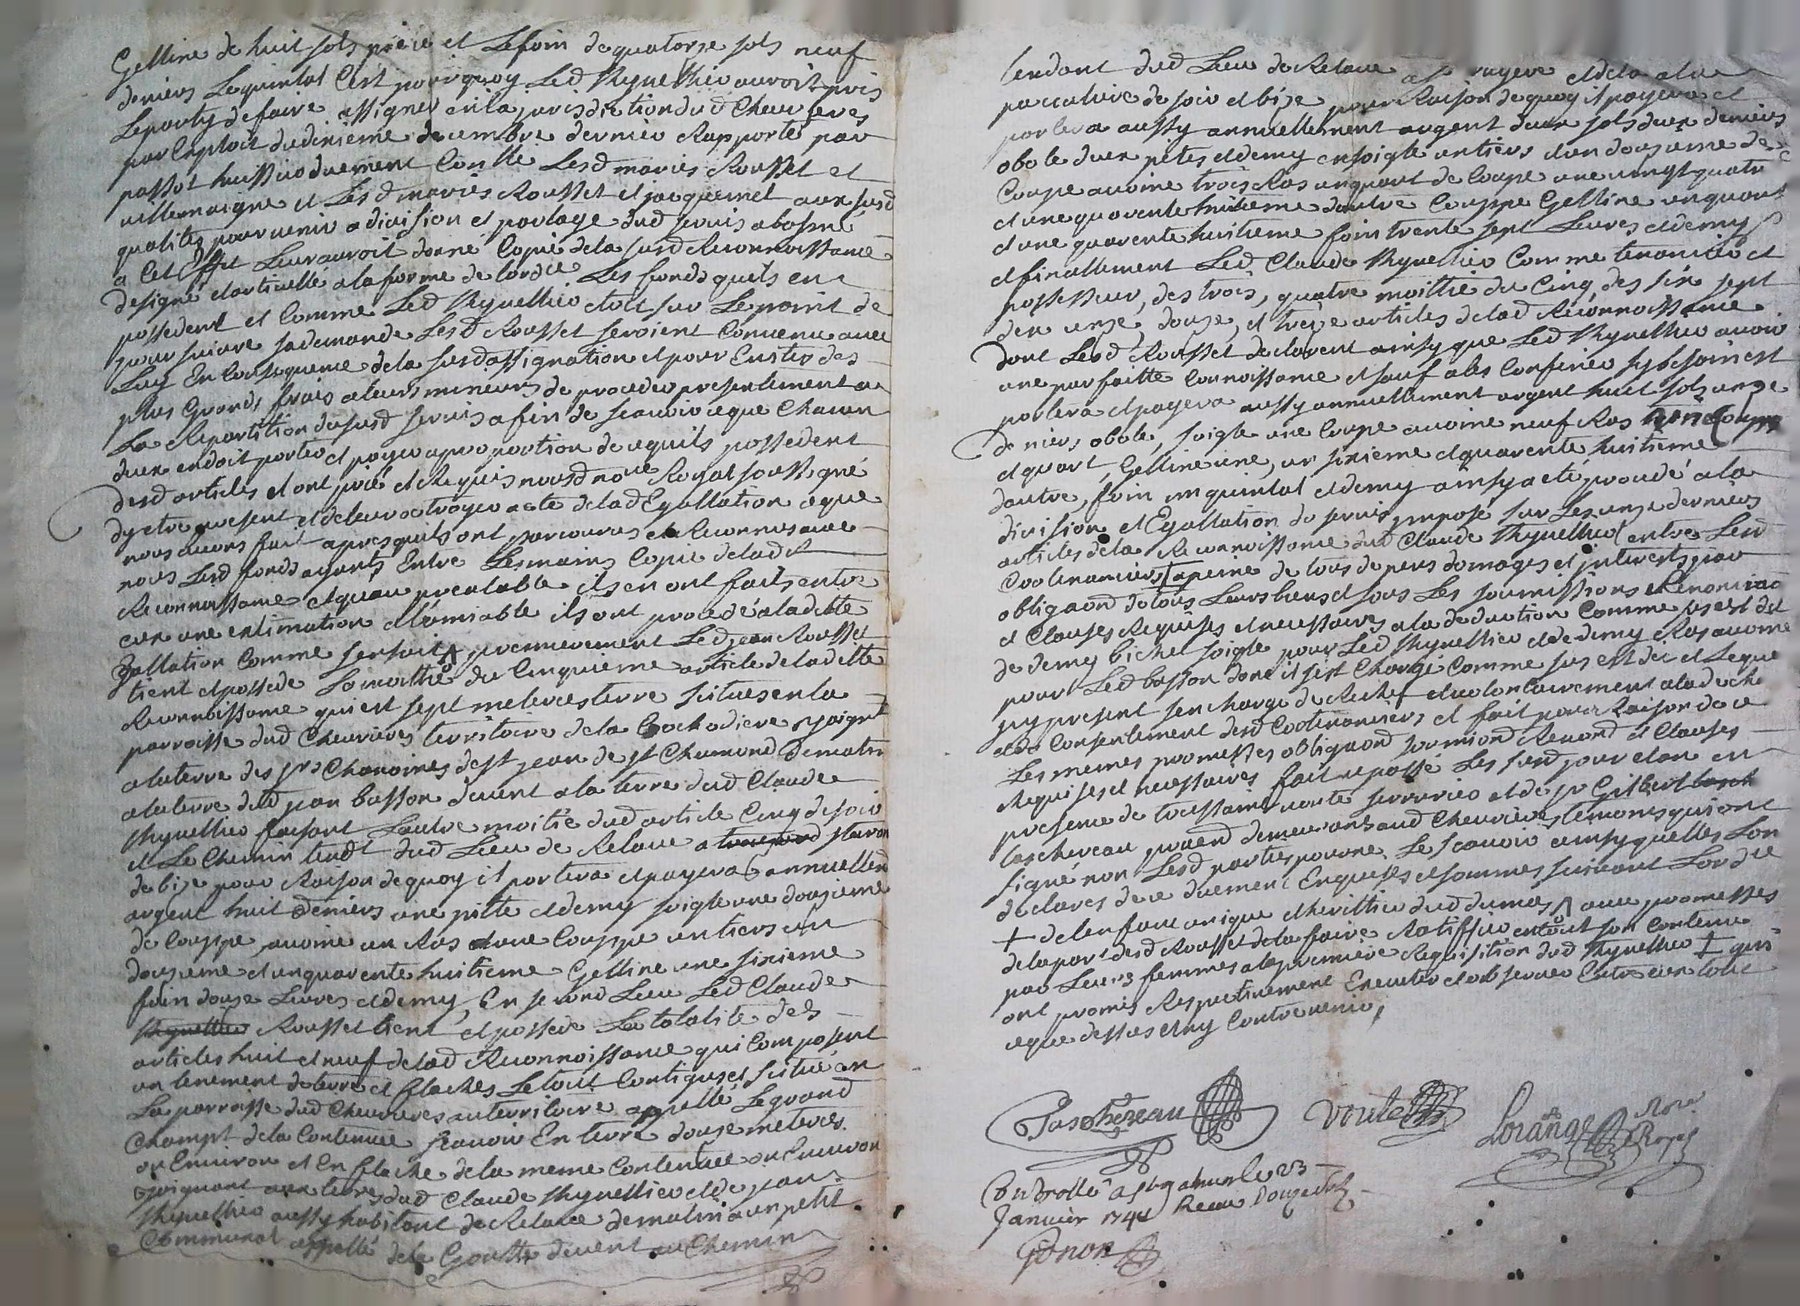 Gelline de huit sols piece et le foin de quatorse sols neuf
deniers Le quintal C'est pourquoy Led Thynellieu auroit pris
Le party de faire assigner en la jurisdiction dud Cheurieres
par Exploit du dixieme decembre dernier Rapporté par
passot huissier duement Conllé Lesd mariés Rousset et
villemaigne et Lesd mariés Rousset et jacquemet aux susd
qualités pour venir a division et partage dud servis abosné
a Cet Effet Leur auroit donné Copie de la susd Reconnoissance
designé et articullé a la forme de Lord.ce Les fonds quels en
possedent et Comme Led Thynellieu etoit sur Le point de
poursuivre sa demande Lesd Rousset seroient Convenu avec
Luy En Consequence de la susd assignation et pour Eviter des
plus Grands frais a leurs mineurs de proceder presentement a
La Repartition du susd servis afin de scauoir ce que Chacun
deux en doit porter et payer a proportion de ce quils possedent
desd articles et ont prié et Requis nousd no.re Royal soussigné
dy etre present et de leur octroyer acte de lad Egallation ce que
nous auons fait apres quils ont parcouru et Reconnu avec
nous Lesd fonds ayants Entre Les mains Copie de lad
Reconnoissance et quau prealable ils en ont fait entre
eux une estimation a l'amiable ils ont procedé a ladette
Egallation Comme sensuit premierement Led jean Rousset
tient et possede La moitié du Cinquieme article de ladette
Reconnoissance qui est sept meterées terre situées en la
parroisse dud Cheurieres territoire de la Bachodiere joignt
a la terre des srs Chanoines de st jean de st Chamond de matin
a la terre dud jean basson devent a la terre dud Claude
Thynellieu faisant Lautre moitié dud article Cinq de soir
et Le Chemin tendt dud Lieu de Relaue a
de bize pour Raison de quoy il portera et payera annuellemt
argent huit deniers une pitte et demy soigle une dousieme
de Couppe, avoine un Ras et une Couppe un tiers un
dousieme et un quarente huitieme Gelline une sixieme
foin douse Livres et demy, En second Lieu Led Claude
Rousset tient et possede La totalité des
articles huit et neuf de lad Reconnoissance qui Composent
un tenement de terre et flaches Le tout Contigu et situé en
La parroisse dud Cheurieres au territoire appellé Le grand
Champt de la Contenue scauoir En terre douse meterées
ou Enuiron et En flache de la meme Contenuee ou Enuiron
joignant aux terres dud Claude Thynellieu et de jean
Thynellieu aussy habitant de Relaue de matin a un petit
Communal appellé de la Goutte devent au Chemin
tendant dud Lieu de Relaue a
paccature de soir et bize pour Raison de quoy il payera et
portera aussy annuellement argent deux sols deux deniers
obole deux pites et demy en soigle un tiers et un dousieme de
Coupe avoine trois Ras un quart de Coupe une vingt quatre
et une quarente huitieme dautre Couppe Gelline un quart
et une quarente huitieme foin trente sept Livres et demy
et finallement Led Claude Thynellieu Comme tenancier et
possesseur, des trois, quatre moitié du Cinq des six sept
dix unse, douse, et treize articles de lad Reconnoissance
dont Lesd Rousset declarent ainsy que Led Thynellieu auoir
une parfaitte Connoissance et sauf a les Confiner sy besoin est
portera et payera aussy annuellement argent huit sols unze
deniers obole, soigle une Coupe avoine neuf Ras
et quart, Gelline une, un sixieme et quarente huitieme
dautre, foin un quintal et demy ainsy a eté procedé a la
division et Egallation du servis imposé sur Les unze derniers
articles de la Reconnoissance dud Claude Thynellieu entre Lesd
Cootenanciers a peine de tous depens domages et interests par
obligaõnd de tous Leurs biens et sous Les soumissions Renonciaõ
et Clauses Requises et necessaires a la deduction Comme sus est dit
de demy bichet soigle pour Led Thynellieu et de demy Ras auoine
pour Led basson dont il sest Chargé Comme sus est dit et Leque
icy present sen charge de Rechef et volontairement a la decharge
et du Consentement desd Cootenanciers et fait pour Raison de ce
Les memes promesses obligaõnd soumiond Renond et Clauses
Requises et necessaires fait et passé Les susd jour et an en
presence de toussaint voute serrurier et de sr Gilbert
Laschereau pratend demeurants aud Cheurieres temoins qui ont
signé non Lesd parties pour ne Le scauoir ainsy quelles Lon
declaré de ce duement Enquises et sommées suivant Lord.ce
+ de lenfant unique et heritier dud dumas avec promesses
de la part desd Rousset de la faire Ratiffier en tout son Contenu
par Leurs femmes a la premiere Requisition dud Thynellieu + qui
ont promis Respectivement Executer et observer Entre eux tout
ce que dessus et ny Contrevenir,
Lascherau voute Lorange No.re Royal
Controllé a st Galmier le 23
Janvier 1744 Receu Douze sols
Gonon